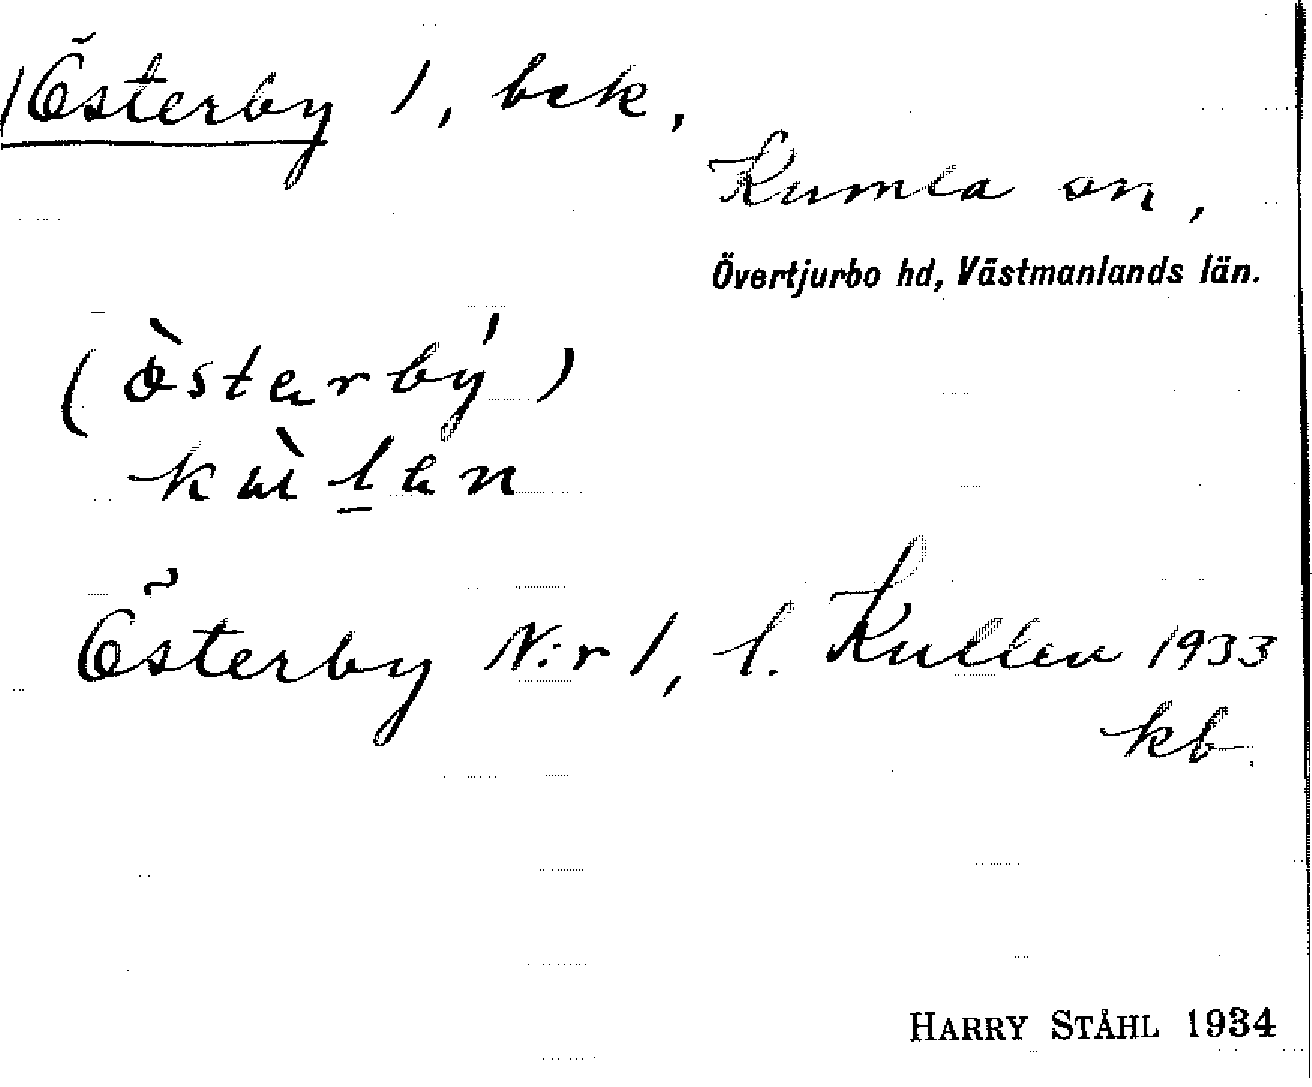 Österby 1, bek,
Kumla sn,
Övertjurbo hd, Västmanlands län.
(ö̀starbý)
kɯ̀l̲an
Österby N:r 1, l. Kullen 1933
kb.
HARRY STÅHL 1934